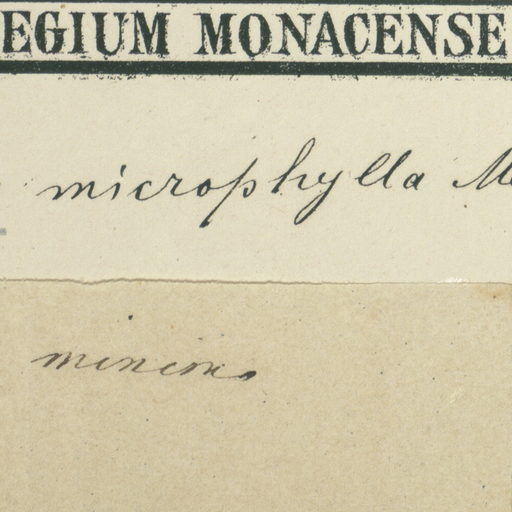 EGIUM MONACENSE
microphylla M